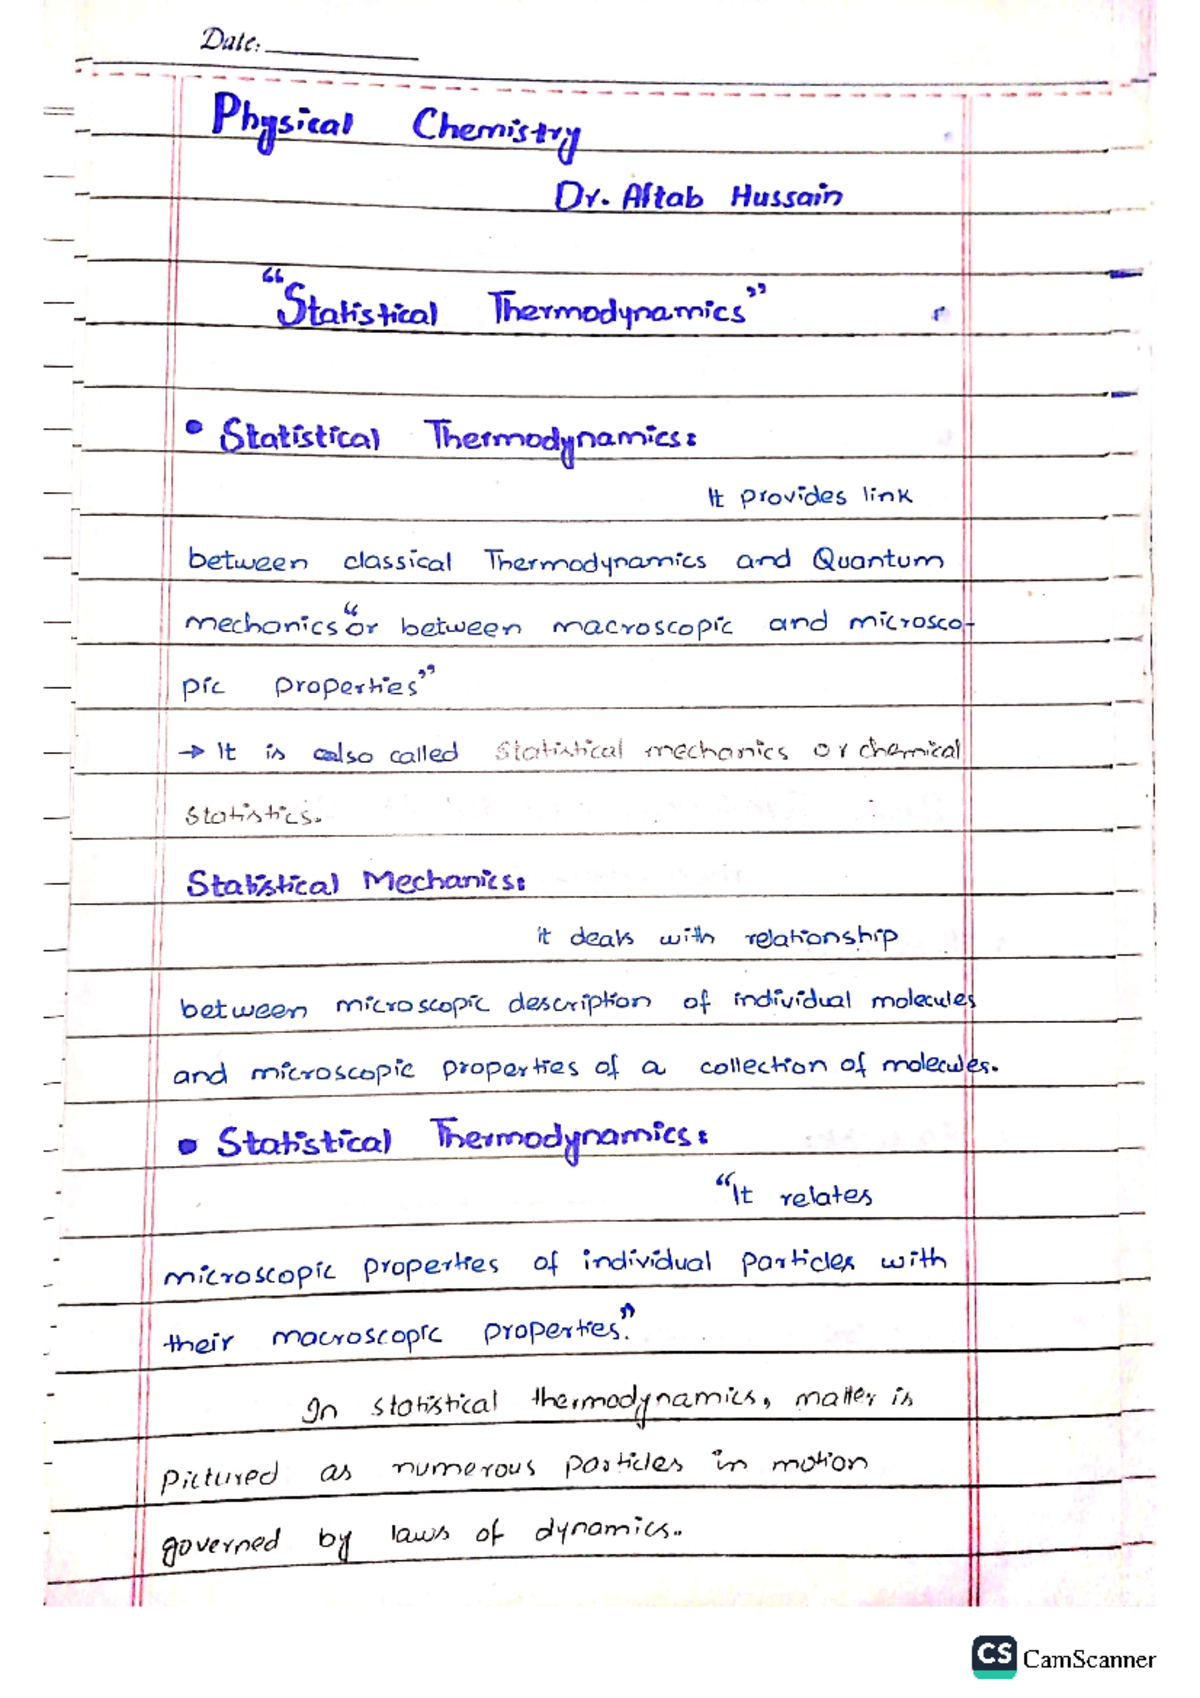 Date:
Physical Chemistry
Dr. Aftab Hussain
"Statistical Thermodynamics"
• Statistical Thermodynamics:
It provides link
between classical Thermodynamics and Quantum
mechanics "or between macroscopic and microsco-
pic properties"
→ It is also called statistical mechanics or chemical
statistics.
Statistical Mechanics:
it deals with relationship
between microscopic description of individual molecules
and microscopic properties of a collection of molecules.
• Statistical Thermodynamics:
"It relates
microscopic properties of individual particles with
their macroscopic properties."
In statistical thermodynamics, matter is
pictured as numerous particles in motion
governed by laws of dynamics.
CS CamScanner